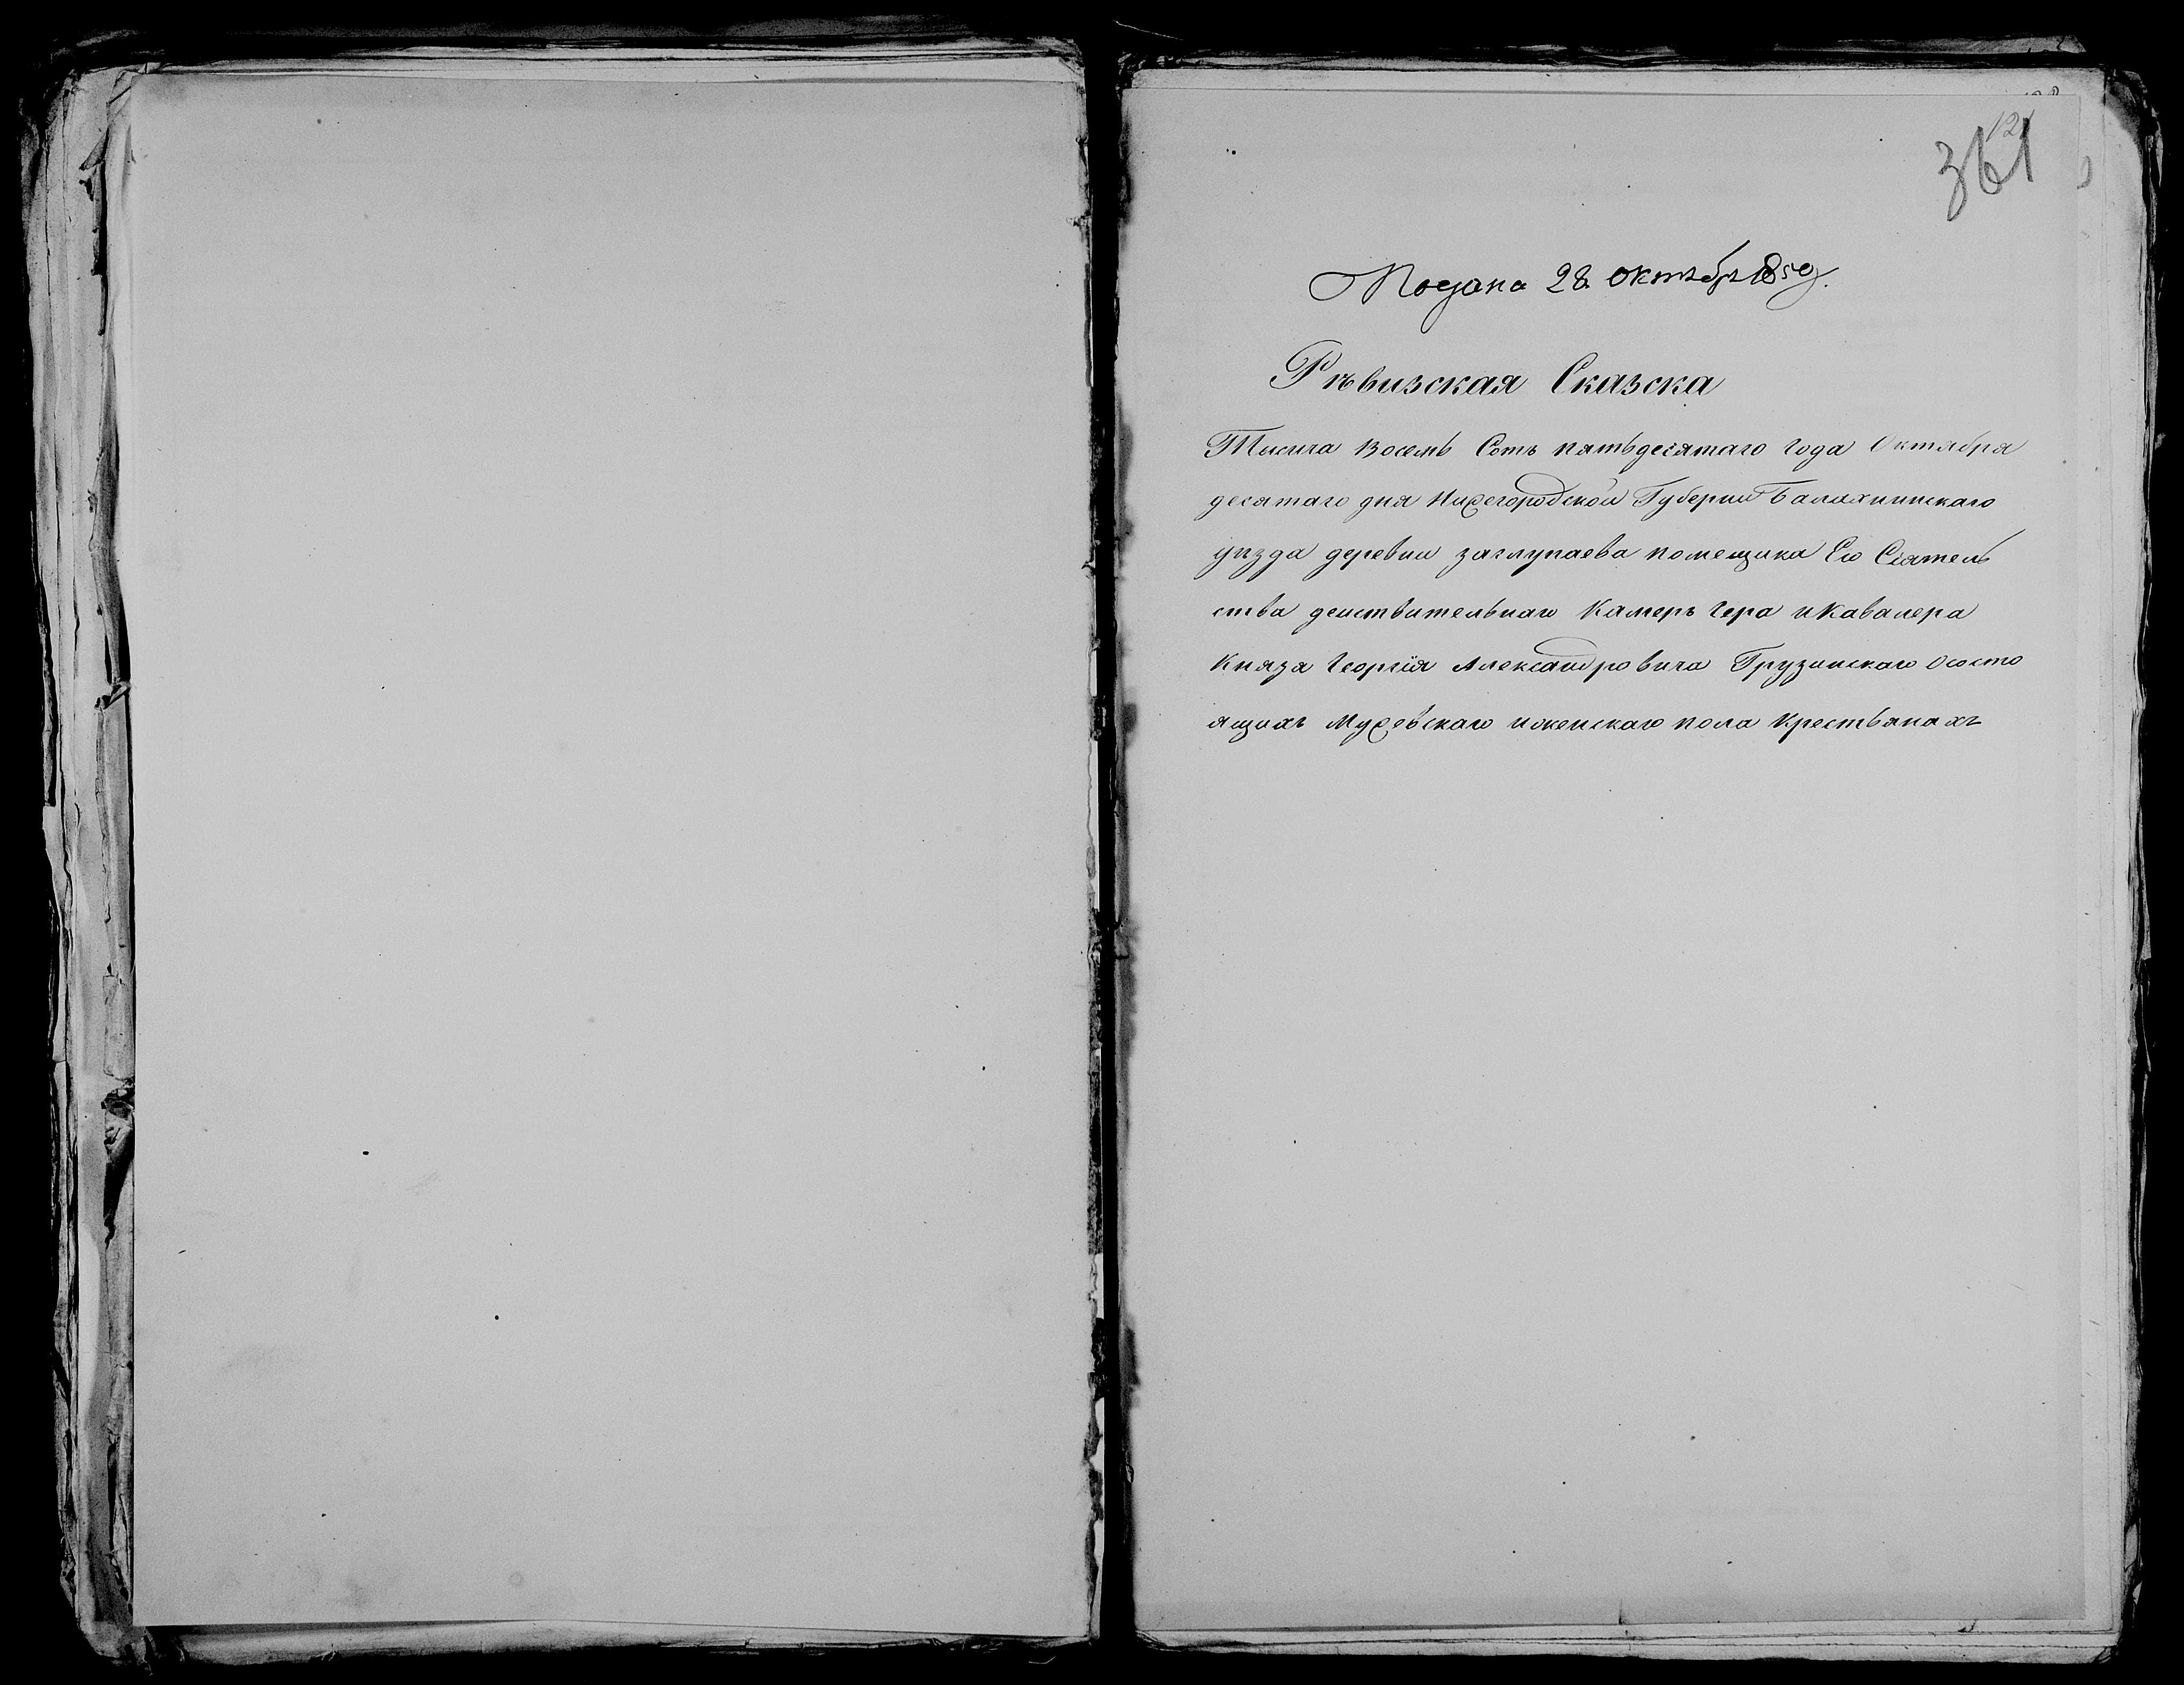 121
361
Подана 28. октября 1850.
Рѣвизская Сказска
Тысича Восемь Сотъ пятьдесятаго года Октября
десятаго дня Нижегородской Губернии Балахнинскаго
уѣзда деревни заглупаева помещика Его Сіятель
ства действительнаго Камеръ гера и Кавалера
Князя Георгія Александровича Грузинскаго Ососто
ящихъ Мужевскаго иженскаго пола Крестьянахъ